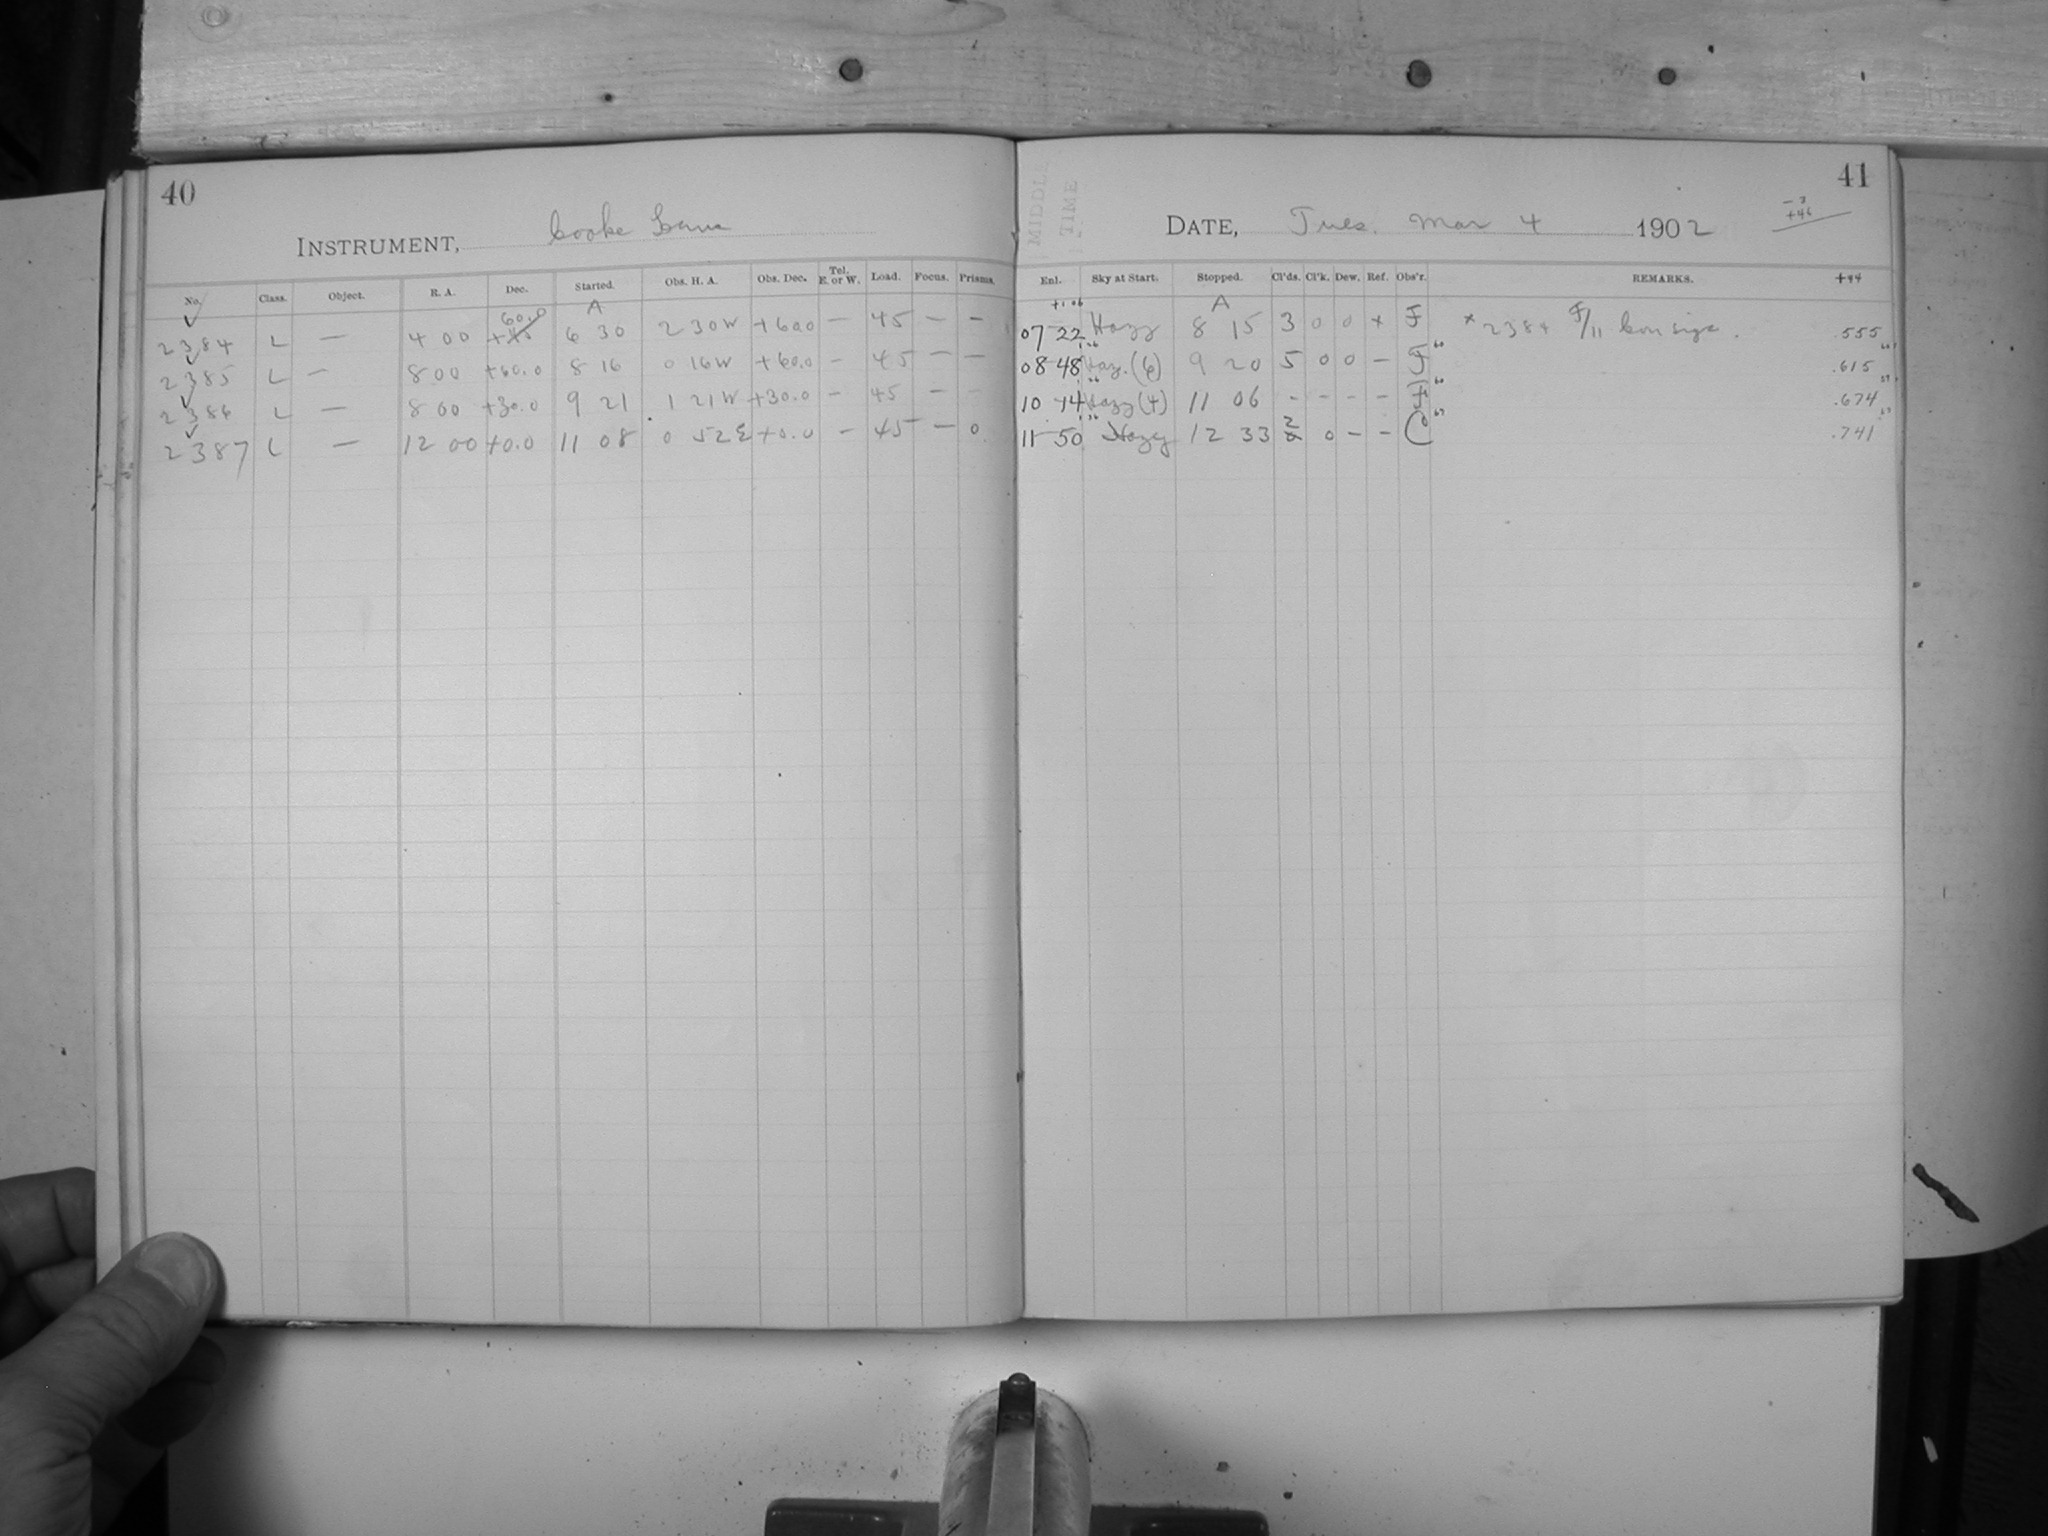 40
INSTRUMENT, Cooke Lens
No. Class. Object. R. A. Dec. Started. Obs. H. A. Obs. Dec. Tel. E. or W. Load. Focus. Prisms.
A
60.0
2384 L — 4 00 +45 6 30 2 30 W +60.0 — 45 — —
2385 L — 8 00 +60.0 8 16 0 16 W +60.0 — 45 — —
2386 L — 8 00 +30.0 9 21 1 21 W +30.0 — 45 — —
2387 L — 12 00 +0.0 11 08 0 52 E +0.0 — 45 — 0
41
MIDDLE
TIME
DATE, Tues. Mar 4 1902
-2
+46
Enl. Sky at Start. Stopped. Cl'ds. Cl'k. Dew. Ref. Obs'r. REMARKS. +44
+1 06 A
07 22 Hazy 8 15 3 0 0 + F * 2384 F/11 Con sign. .555
08 48 Haz. (6) 9 20 5 0 0 — F 60 .615
10 14 Hazy (4) 11 06 - - - - F 60 .674
11 50 Hazy 12 33 2 0 - - C 67 .741